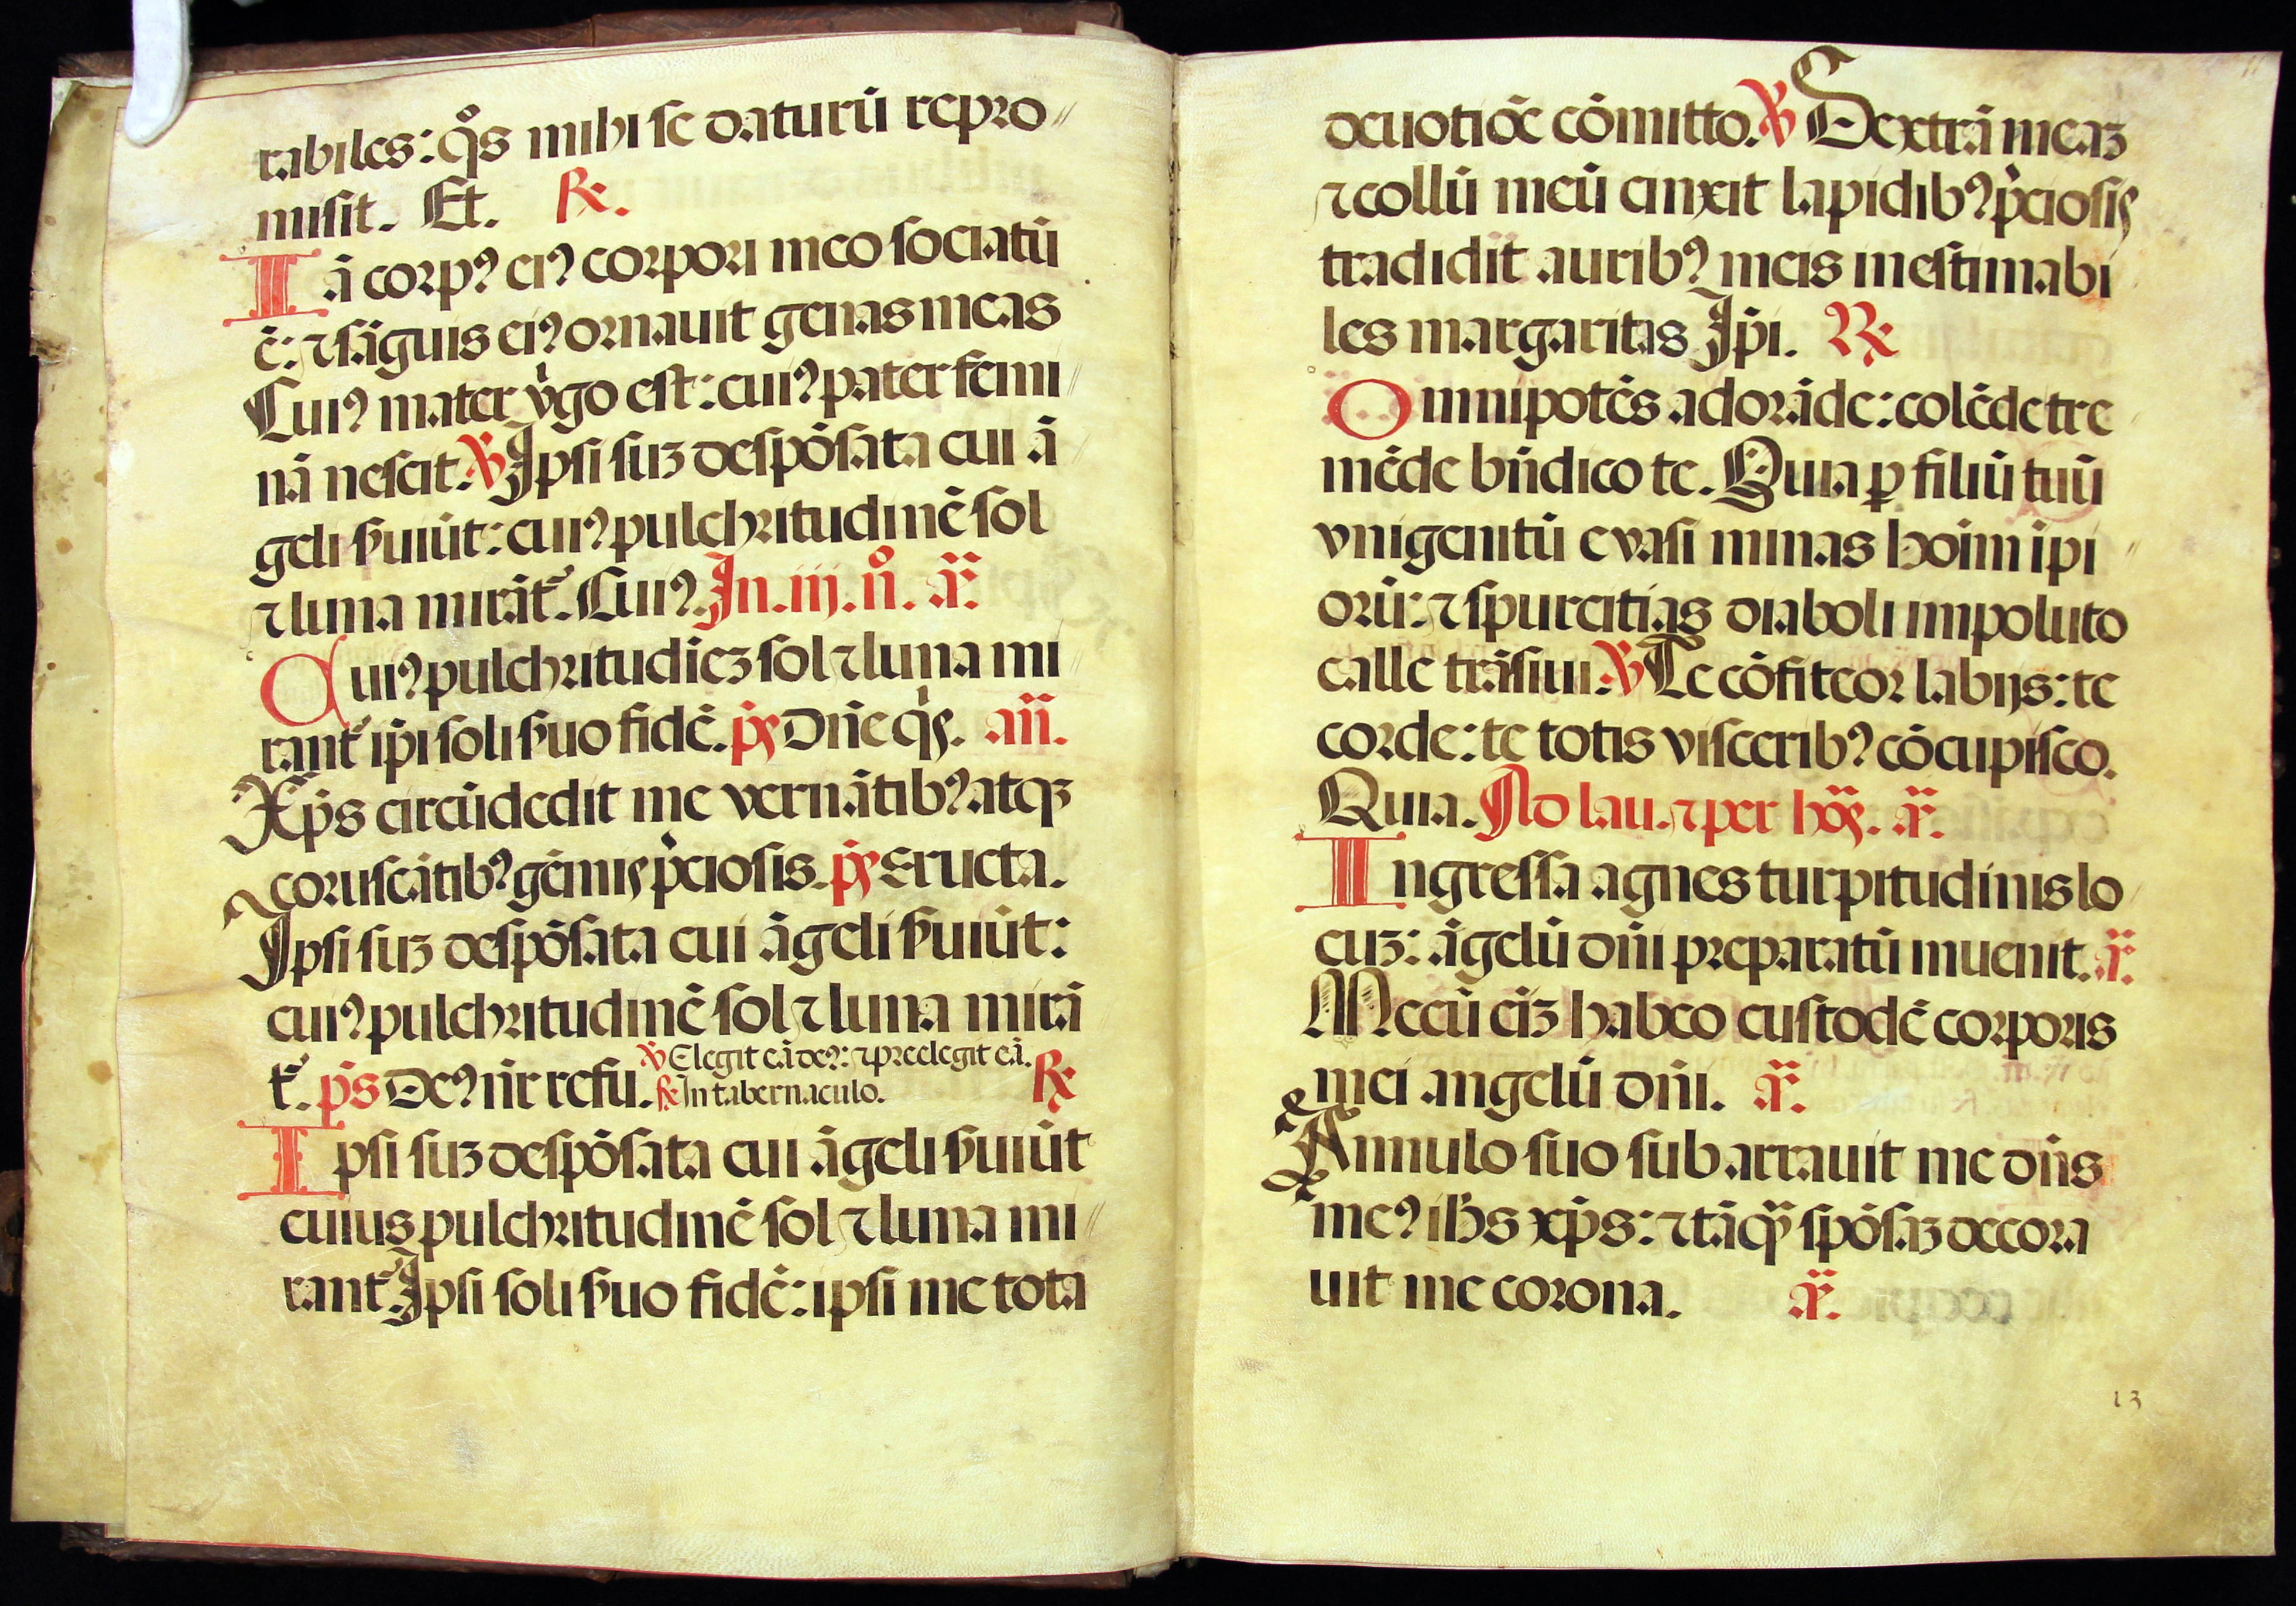 rabiles: q̊s mihi se daturū repro〃
misit. Et. ℟.
Iā corpꝰ eiꝰ corpori meo sociatū
ē: ⁊ sāguis eiꝰ ornauit genas meas
Cuiꝰ mater v̓go est: cuiꝰ pater femi〃
nā nescit. ℣ Ipsi suꝫ despōsata cui ā
geli ẜuiūt: cuiꝰ pulchritudinē sol
⁊ luna mirāt᷑. Cuiꝰ. In. iij. n̊. añ.
Cuiꝰ pulchritudiēꝫ sol ⁊ luna mi〃
rant᷑ ip̄i soli ẜuo fidē. p̄s Dn̄e q̓s. an̄.
Xp̄s circūdedit me vernātibꝰ atqꝫ
coruscātibꝰ gēmis p̓ciosis. p̄s Eructa.
Ipsi suꝫ despōsata cui āgeli ẜuiūt:
cuiꝰ pulchritudinē sol ⁊ luna mirā
t᷑. p̄s Deꝰ nr̄ refu. ℣ Elegit eā deꝰ: ⁊ preelegit eā. ℟ In tabernaculo. ℟
Ipsi suꝫ despōsata cui āgeli ẜuiūt
cuius pulchritudinē sol ⁊ luna mi〃
rant᷑ Ipsi soli ẜuo fidē: ipsi me tota
deuotiōe cōmitto. ℣ Dextrā meaꝫ
⁊ collū meū cinxit lapidibꝰ p̓ciosis
tradidit auribꝰ meis inestimabi
les margaritas Ip̄i. ℟
Omnipotēs adorāde: colēde tre
mēde bn̄dico te. Quia ꝑ filiū tuū
vnigenitū euasi minas hoim ipi〃
orū: ⁊ spurcitias diaboli impoluto
calle trāsiui. ℣ Te cōfiteor labijs: te
corde: te totis visceribꝰ cōcupisco.
Quia. Ad lau. ⁊ per hōs. añ.
Ingressa agnes turpitudinis lo
cuꝫ: āgelū dn̄i preparatū inuenit. añ.
Mecū eīꝫ habeo custodē corporis
mei angelū dn̄i. añ.
Annulo suo subarrauit me dn̄s
meꝰ ih̄s xp̄s: ⁊ tāq̄ʒ spōsaꝫ decora
uit me corona. añ.
13